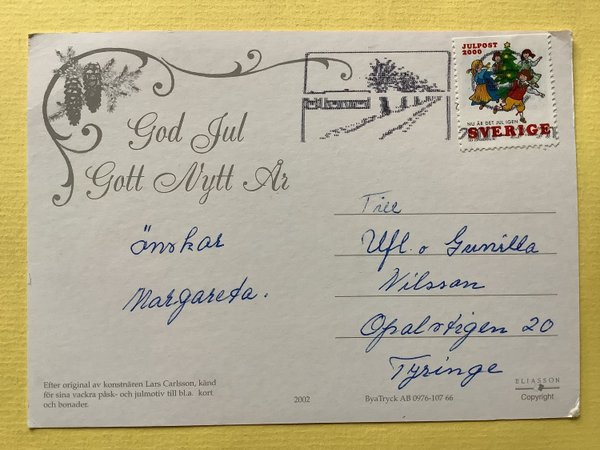 JULPOST
2000
NU ÄR DET JUL IGEN
SVERIGE
God Jul
Gott Nytt År
önskar
Margareta.
Till
Ulf. o Gunilla
Nilsson
Opalstigen 20
Tyringe
Efter original av konstnären Lars Carlsson, känd
för sina vackra påsk- och julmotiv till bl.a. kort
och bonader.
2002
ByaTryck AB 0976-107 66
ELIASSON
Copyright